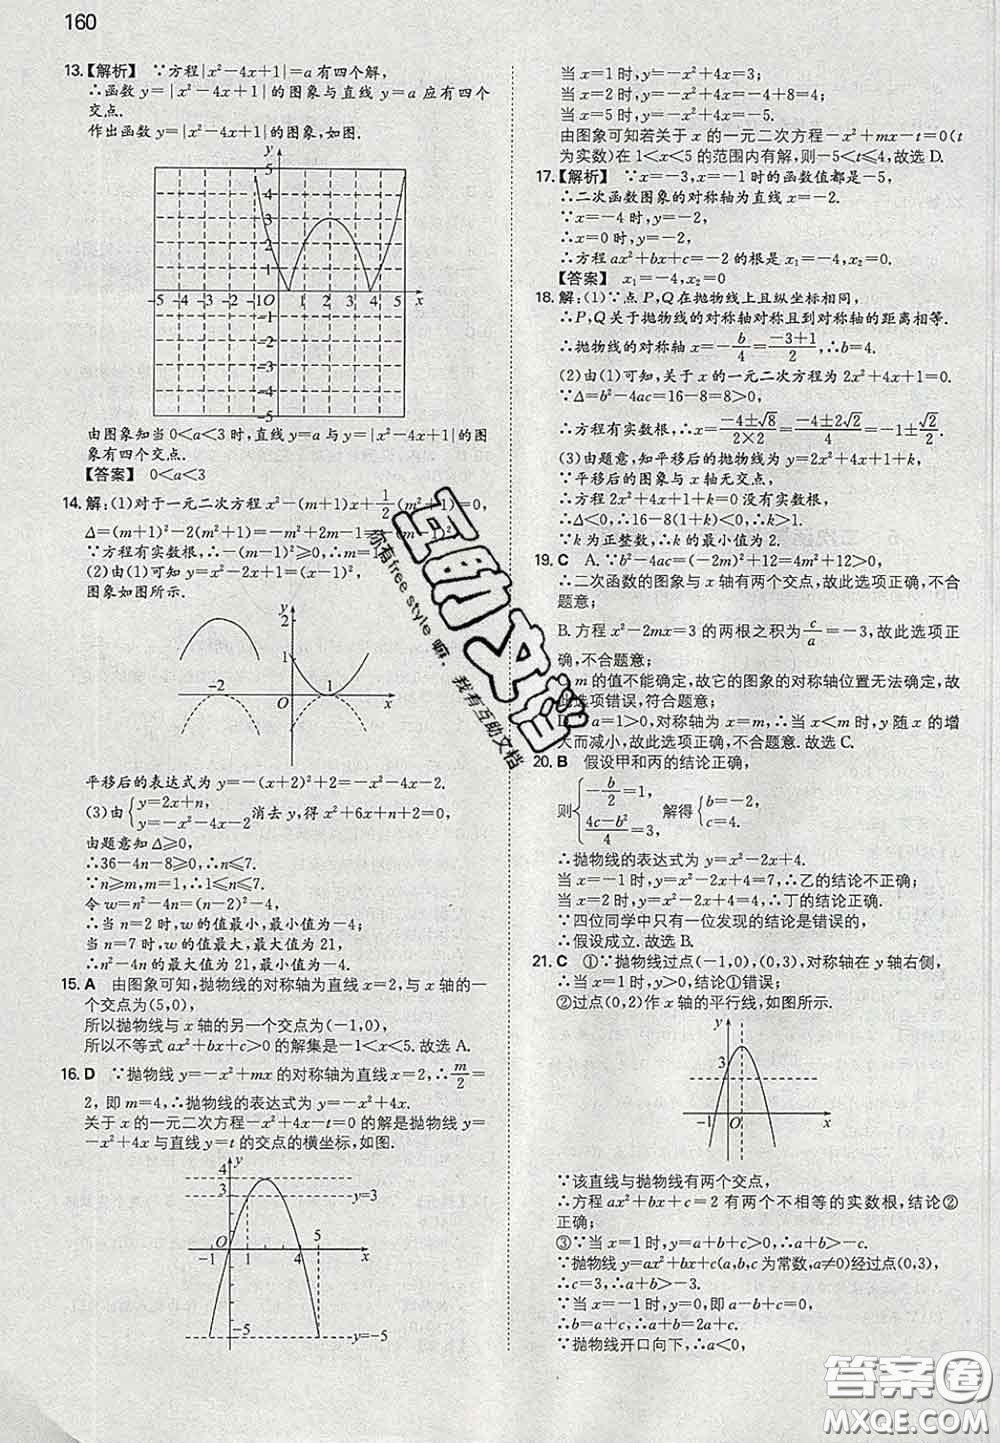 160
13.【解析】 ∵方程|x²-4x+1|=a有四个解,
∴函数y=|x²-4x+1|的图象与直线y=a应有四个
交点.
作出函数y=|x²-4x+1|的图象,如图.
y
5
4
3
2
1
-5 -4 -3 -2 -1 O 1 2 3 4 5 x
-1
-2
-3
-4
-5
由图象知当0<a<3时,直线y=a与y=|x²-4x+1|的图
象有四个交点.
【答案】 0<a<3
14.解:(1)对于一元二次方程x²-(m+1)x+1/2(m²+1)=0,
Δ=(m+1)²-2(m²+1)=-m²+2m-1=-(m-1)².
∵方程有实数根,∴m=1.
(2)由(1)可知y=x²-2x+1=(x-1)²,
图象如图所示.
y
2
1
-2 O 1 x
平移后的表达式为y=-(x+2)²+2=-x²-4x-2.
(3)由{y=2x+n, y=-x²-4x-2 消去y,得x²+6x+n+2=0,
由题意知Δ≥0,
∴36-4n-8≥0,∴n≤7.
∵n≥m,m=1,∴1≤n≤7.
令w=n²-4n=(n-2)²-4,
∴当n=2时,w的值最小,最小值为-4;
当n=7时,w的值最大,最大值为21,
∴n²-4n的最大值为21,最小值为-4.
15.A 由图象可知,抛物线的对称轴为直线x=2,与x轴的一
个交点为(5,0),
所以抛物线与x轴的另一个交点为(-1,0),
所以不等式ax²+bx+c>0的解集是-1<x<5.故选A.
16.D ∵抛物线y=-x²+mx的对称轴为直线x=2,∴m/2=
2,即m=4,∴抛物线的表达式为y=-x²+4x.
关于x的一元二次方程-x²+4x-t=0的解是抛物线y=
-x²+4x与直线y=t的交点的横坐标,如图.
y
4
3 y=3
5
-1 O 1 4 x
-5 y=-5
当x=1时,y=-x²+4x=3;
当x=2时,y=-x²+4x=-4+8=4;
当x=5时,y=-x²+4x=-5.
由图象可知若关于x的一元二次方程-x²+mx-t=0(t
为实数)在1<x<5的范围内有解,则-5<t≤4,故选D.
17.【解析】 ∵x=-3,x=-1时的函数值都是-5,
∴二次函数图象的对称轴为直线x=-2.
∵x=-4时,y=-2,
∴x=0时,y=-2,
∴方程ax²+bx+c=-2的根是x₁=-4,x₂=0.
【答案】 x₁=-4,x₂=0
18.解:(1)∵点P,Q在抛物线上且纵坐标相同,
∴P,Q关于抛物线的对称轴对称且到对称轴的距离相等.
∴抛物线的对称轴x=-b/4=(-3+1)/2,∴b=4.
(2)由(1)可知,关于x的一元二次方程为2x²+4x+1=0.
∵Δ=b²-4ac=16-8=8>0,
∴方程有实数根,∴x=(-4±√8)/(2×2)=(-4±2√2)/4=-1±√2/2.
(3)由题意,知平移后的抛物线为y=2x²+4x+1+k.
∵平移后的图象与x轴无交点,
∴方程2x²+4x+1+k=0没有实数根,
∴Δ<0,∴16-8(1+k)<0,∴k>1.
∵k为正整数,∴k的最小值为2.
19.C A.∵b²-4ac=(-2m)²+12=4m²+12>0,
∴二次函数的图象与x轴有两个交点,故此选项正确,不合
题意;
B.方程x²-2mx=3的两根之积为c/a=-3,故此选项正
确,不合题意;
C.m的值不能确定,故它的图象的对称轴位置无法确定,故
此选项错误,符合题意;
D.∵a=1>0,对称轴为x=m,∴当x<m时,y随x的增
大而减小,故此选项正确,不合题意.故选C.
20.B 假设甲和丙的结论正确,
则{-b/2=1, (4c-b²)/4=3, 解得{b=-2, c=4.
∴抛物线的表达式为y=x²-2x+4.
当x=-1时,y=x²-2x+4=7,∴乙的结论不正确;
当x=2时,y=x²-2x+4=4,∴丁的结论正确.
∵四位同学中只有一位发现的结论是错误的,
∴假设成立.故选B.
21.C ①∵抛物线过点(-1,0),(0,3),对称轴在y轴右侧,
∴当x=1时,y>0,结论①错误;
②过点(0,2)作x轴的平行线,如图所示.
y
3
-1 O x
∵该直线与抛物线有两个交点,
∴方程ax²+bx+c=2有两个不相等的实数根,结论②
正确;
③∵当x=1时,y=a+b+c>0,∴a+b>-c.
∵抛物线y=ax²+bx+c(a,b,c为常数,a≠0)经过点(0,3),
∴c=3,∴a+b>-3.
∵当x=-1时,y=0,即a-b+c=0,
∴b=a+c,∴a+b=2a+c.
∵抛物线开口向下,∴a<0,
互助文档
你有free style嘛,我有互助文档
答案圈
MXQE.COM